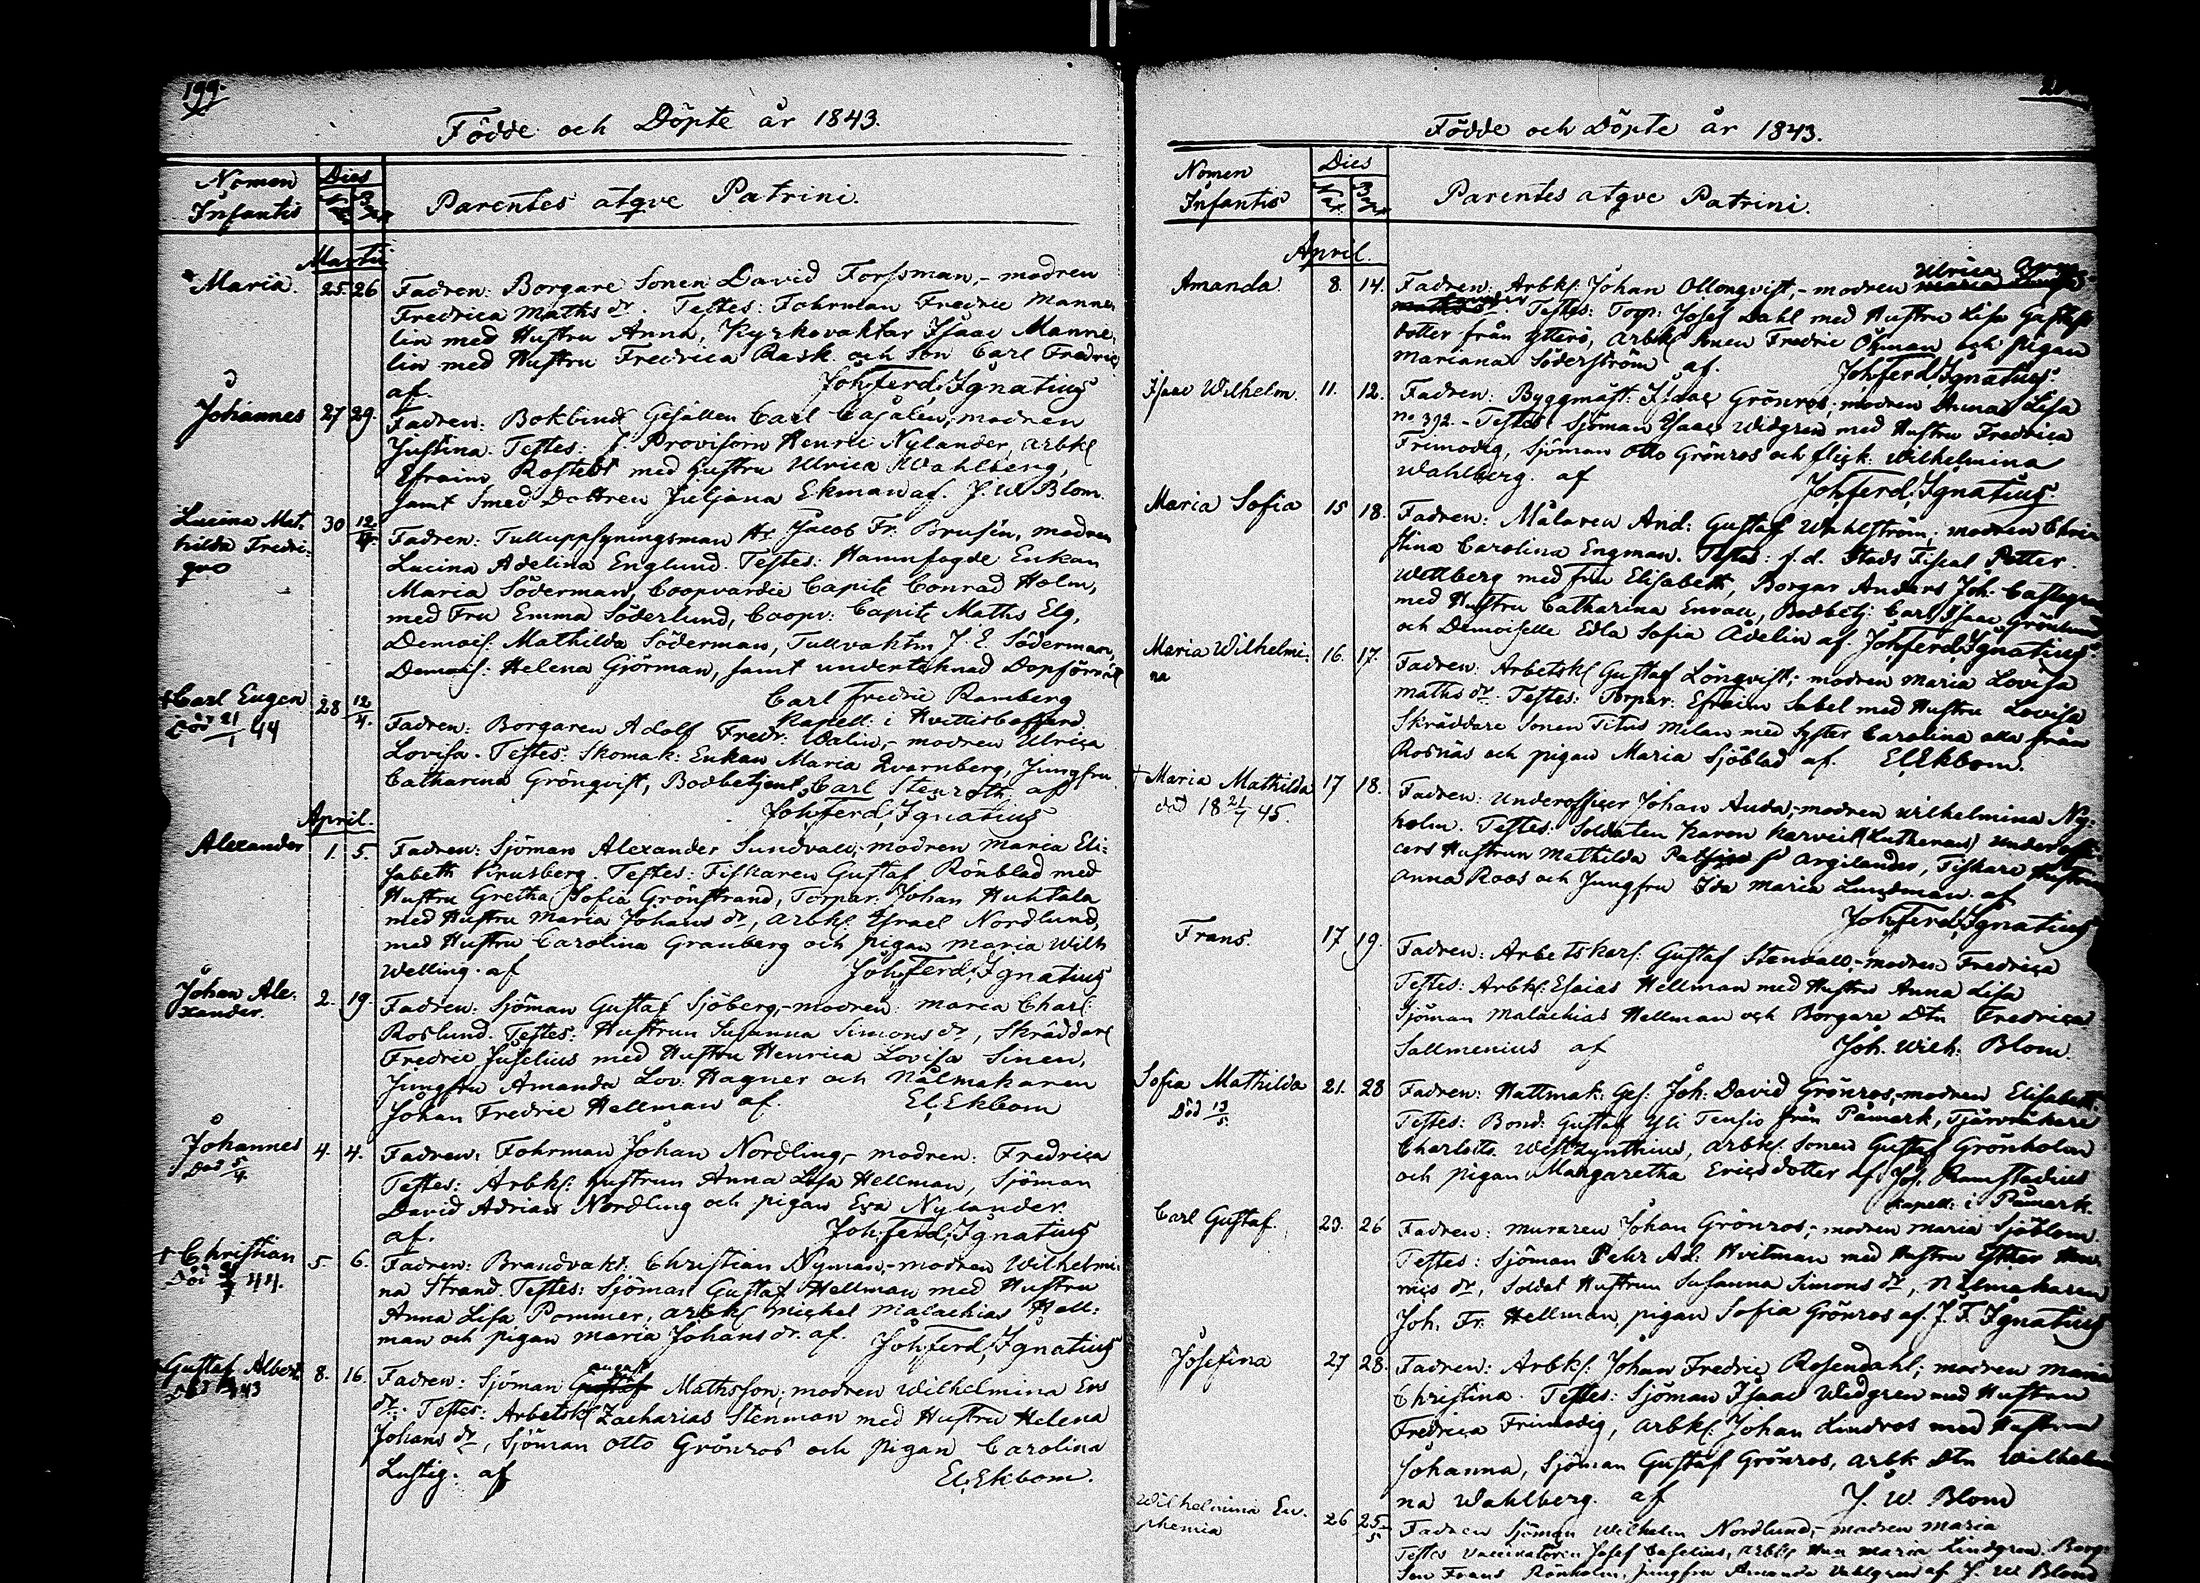 199.
Födde och Döpte år 1843.
Nomen Infantis
Dies
Parentes atqve Patrini.
Martii
Maria. 25. 26 Fadren: Borgare Sonen David Forssman,- modren
Fredrica Maths dr. Testes: Fohrman Fredric Manne-
lin med Hustru Anna, Kyrkovaktar Isaac Manne-
lin med Hustru Fredrica Rask och Son Carl Fredric
af. Joh: Ferd: Ignatius
Johannes 27 29. Fadren: Bokbind: Gesällen Carl Cajalen, modren
Justina. Testes: f. Provisorn Henric Nylander, Arbk:
Efraim Rostedt med hustru Ulrica Wahlberg,
samt Smed Dottren Juljana Ekman af. J. W. Blom.
Lucina Mat- 30 12/4. Fadren: Tulluppsyningsman Hr Jacob Fr. Brusin, modren
hilda Fredri- Lucina Adelina Englund. Testes: Hamnfogde Enkan
qve Maria Söderman, Coopvardie Capite Conrad Holm,
med Fru Emma Söderlund, Coopv: Capite Maths Elg,
Demois: Mathilda Söderman, Tullvaktm J. E. Söderman,
Demois: Helena Gjörman, samt underteknad Dopförrätt
Carl Fredric Ramberg
Kapell: i Hvittisbofjerd.
+ Carl Eugen 28 12/4. Fadren: Borgaren Adolf Fredr: Walin,- modren Ulrica
Död 21/1 44 Lovisa. Testes: Skomak: Enkan Maria Qvarnberg, Jungfru
Catharina Grönqvist, Bodbetjent Carl Stenroth af
Joh: Ferd: Ignatius
April.
Alexander 1. 5. Fadren: Sjöman Alexander Sundvall,- modren Maria Eli-
sabeth Brusberg. Testes: Fiskaren Gustaf Rönblad med
Hustru Gretha Sofia Grönstrand, Torpar: Johan Huhtala
med Hustru Maria Johans dr, Arbk: Israel Nordlund,
med Hustru Carolina Granberg och pigan Maria Wilh
Welling. af Joh: Ferd: Ignatius
Johan Ale- 2. 19. Fadren: Sjöman Gustaf Sjöberg,- modren: Maria Charl:
xander. Roslund. Testes: Hustrun Susanna Simons dr, Skräddare
Fredric Juselius med Hustru Henrica Lovisa Sinen,
Jungfru Amanda Lov: Hagner och Nålmakaren
Johan Fredric Hellman af. El. Ekbom
Johannes 4. 4. Fadren: Fohrman Johan Nordling,- modren: Fredrica
Död 5/4. Testes: Arbk: hustrun Anna Lisa Hellman, Sjöman
David Adrian Nordling och pigan Eva Nylander.
af. Joh: Ferd: Ignatius
+ Christian 5. 6. Fadren: Brandvakt: Christian Nyman,- modren Wilhelmi-
Död 44. na Strand. Testes: Sjöman Gustaf Hellman med Hustru
Anna Lisa Pommer, Arbk: Michel Malachias Hell-
man och pigan Maria Johans dr. af. Joh: Ferd: Ignatius
Gustaf Albert 8. 16. Fadren: Sjöman Gustaf August Mathsson, modren Wilhelmina Ers
Död 43 dr. Testes: Arbetsk: Zacharias Stenman med Hustru Helena
Johans dr, Sjöman Otto Grönros och pigan Carolina
Lustig. af El. Ekbom.
Födde och Döpte år 1843.
Nomen Infantis
Dies
Parentes atqve Patrini.
April.
Amanda 8. 14. Fadren: Arbk: Johan Ollonqvist,- modren Ulrica
Testes: Torp: Josef Dahl med Hustru Lisa Gustafs
dotter från Ytterö, Arbk: Sonen Fredric Öhman och pigan
Mariana Söderström af. Joh: Ferd: Ignatius.
Isaac Wilhelm. 11. 12. Fadren: Byggmäst: Isaac Grönros, modren Anna Lisa
No 392. - Testes: Sjöman Isaac Widgren med Hustru Fredrica
Frimodig, Sjöman Otto Grönros och flick: Wilhelmina
Wahlberg. af Joh: Ferd: Ignatius.
Maria Sofia 15 18. Fadren: Målaren And: Gustaf Wahlström, modren Chri-
stina Carolina Engman. Testes: f.d. Stads Fiscal Petter
Wettberg med fru Elisabeth, Borgar Anders Joh: Castegren
med Hustru Catharina Envall, Bodbetj: Carl Isaac Grönlund
och Demoiselle Edla Sofia Ådelin af Joh: Ferd: Ignatius.
Maria Wilhelmi- 16. 17. Fadren: Arbetsk: Gustaf Lönqvist,- modren Maria Lovisa
na Maths dr. Testes: Torpar: Efraim Sabel med Hustru Lovisa
Skräddare Sonen Titus Milan med Syster Carolina alla från
Rosnäs och pigan Maria Sjöblad af. El. Ekbom.
+ Maria Mathilda 17 18. Fadren: Underofficer Johan Auda,- modren Wilhelmina Ny-
död 18 21/7 45. holm. Testes: Soldaten Karon Karveik (Lutheran) Underoffi-
cers Hustrun Mathilda Argilander, Fiskare Hustrun
Anna Roos och Jungfru Ida Maria Lundman. af
Joh: Ferd: Ignatius
Frans. 17 19. Fadren: Arbetskarl: Gustaf Stenvall,- modren Fredrica
Testes: Arbk: Esaias Hellman med Hustru Anna Lisa
Sjöman Malachias Hellman och Borgare Dtn Fredrica
Sallmenius af Joh. Wilh: Blom.
Sofia Mathilda 21. 28 Fadren: Hattmak: Ges: Joh: David Grönros,- modren Elisabeth
Död 13/5. Testes: Bond: Gustaf Yli Tensio från Påmark, Tjärvräkare
Charlotta Westzynthius, Arbk: Sonen Gustaf Grönholm
och pigan Margaretha Ericsdotter af Joh. Ramstadius
Kapell: i Påmark.
Carl Gustaf. 23. 26 Fadren: Muraren Johan Grönros,- modren Maria Sjöblom.
Testes: Sjöman Pehr Ad: Hvitman med Hustru Esther Hen-
rics dr, Soldat Hustrun Susanna Simons dr, Nålmakaren
Joh. Fr. Hellman, pigan Sofia Grönros af. J. F. Ignatius
Josefina 27 28. Fadren: Arbk: Johan Fredric Rosendahl; modren Maria
Christina. Testes: Sjöman Isaac Widgren med Hustru
Fredrica Frimodig, Arbk: Johan Lindros med Hustru
Johanna, Sjöman Gustaf Grönros, Arbk Dtn Wilhelmi-
na Wahlberg. af J. W. Blom
Wilhelmina Eu- 26 25/5 Fadren Sjöman Wilhelm Nordlund,- modren Maria
phemia Testes Vaccinatören Josef Caselius, Arbk: Hun Maria Lindgren. Borg:
Son Frans Rönholm, jungfru Amanda Vahlgren af J. W Blom